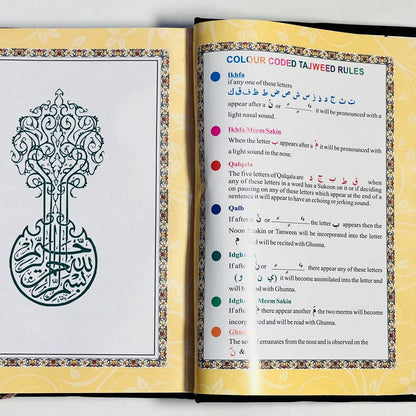 COLOUR CODED TAJWEED RULES
Ikhfa
if any one of these letters
ت ث ج د ذ ز س ش ص ض ط ظ ف ق ك
appear after a نْ or it will be pronounced with a
light nasal sound.
Ikhfa Meem Sakin
When the letter ب appears after a مْ it will be pronounced with
a light sound in the nose.
Qalqala
The five letters of Qalqala are ق ط ب ج د when
any of these letters in a word has a Sukoon on it or if deciding
on pausing on any of these letters which appear at the end of a
sentence it will appear to have an echoing or jerking sound.
Qalb
If after a نْ or the letter ب appears then the
Noon Saakin or Tanween will be incorporated into the letter
م and will be recited with Ghunna.
Idgham
If after a نْ or there appear any of these letters
(ي ن م و) it will become assimilated into the letter and
will be read with Ghunna.
Idgham Meem Sakin
If after مْ there appear another م the two meems will become
incorporated and will be read with Ghunna.
Ghunna
The sound emanates from the nose and is observed on the
نّ &